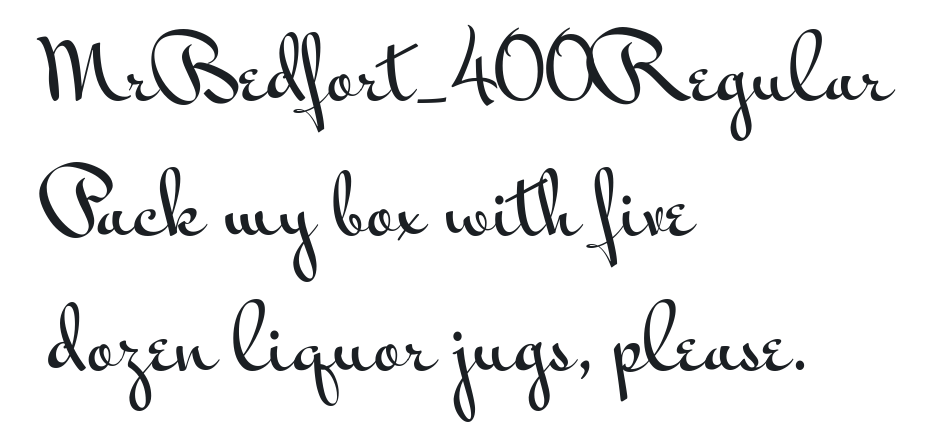 MrBedfort_400Regular
Pack my box with five
dozen liquor jugs, please.